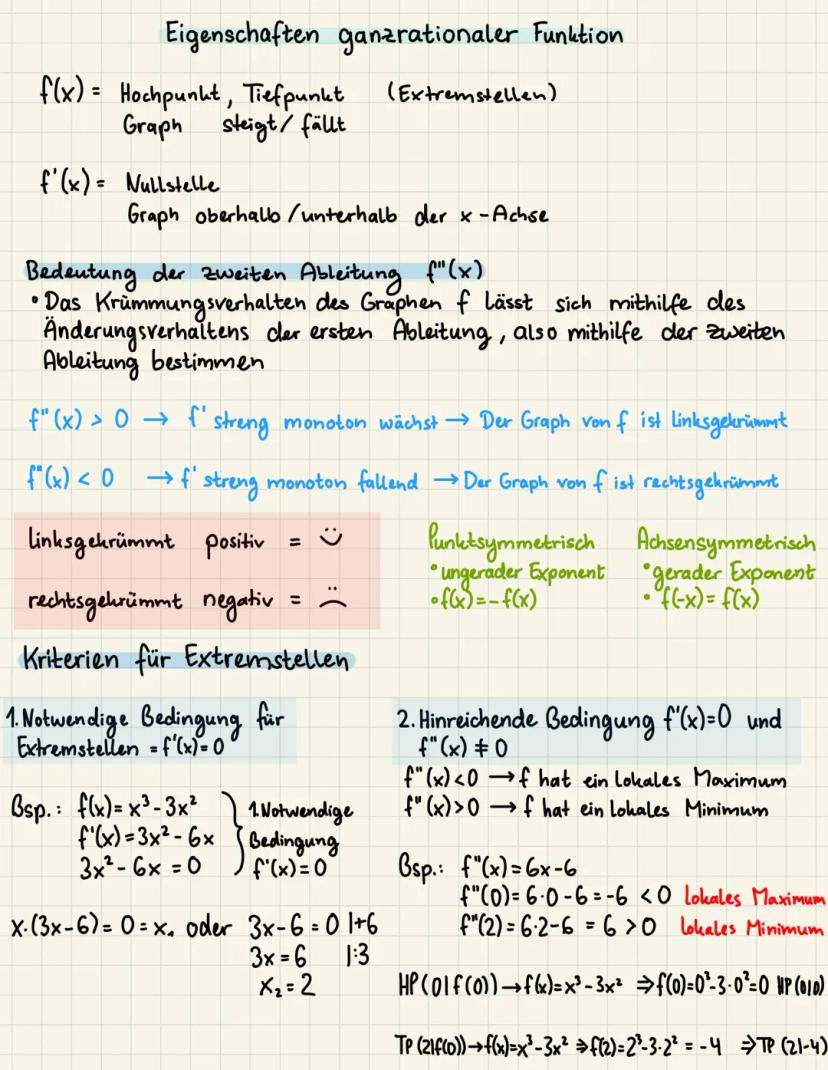 Eigenschaften ganzrationaler Funktion
f(x) = Hochpunkt, Tiefpunkt (Extremstellen)
Graph steigt/ fällt
f'(x) = Nullstelle
Graph oberhalb/unterhalb der x-Achse
Bedeutung der zweiten Ableitung f"(x)
• Das Krümmungsverhalten des Graphen f lässt sich mithilfe des
Änderungsverhaltens der ersten Ableitung, also mithilfe der zweiten
Ableitung bestimmen
f"(x) > 0 → f' streng monoton wächst → Der Graph von f ist linksgekrümmt
f"(x) < 0 → f' streng monoton fallend → Der Graph von f ist rechtsgekrümmt
linksgekrümmt positiv = :)
rechtsgekrümmt negativ = :(
Punktsymmetrisch
• ungerader Exponent
• f(x) = -f(x)
Achsensymmetrisch
• gerader Exponent
• f(-x) = f(x)
Kriterien für Extremstellen
1. Notwendige Bedingung für
Extremstellen = f'(x) = 0
Bsp.: f(x) = x³ - 3x²
f'(x) = 3x² - 6x
3x² - 6x = 0
1. Notwendige
Bedingung
f'(x) = 0
x·(3x-6) = 0 = x₁ oder 3x-6 = 0 |+6
3x = 6 |:3
x₂ = 2
2. Hinreichende Bedingung f'(x)=0 und
f"(x) ≠ 0
f"(x) < 0 → f hat ein lokales Maximum
f"(x) > 0 → f hat ein lokales Minimum
Bsp.: f"(x) = 6x-6
f"(0) = 6·0-6 = -6 < 0 lokales Maximum
f"(2) = 6·2-6 = 6 > 0 lokales Minimum
HP(0|f(0)) → f(x) = x³-3x² ⇒ f(0) = 0³-3·0² = 0 HP(0|0)
TP(2|f(0)) → f(x) = x³-3x² ⇒ f(2) = 2³-3·2² = -4 ⇒ TP(2|-4)